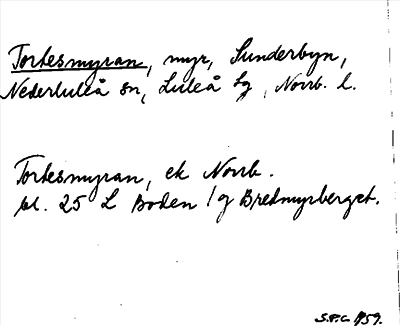 Tortesmyran, myr, Sunderbyn,
Nederluleå sn, Luleå tg, Norrb. l.
Tortesmyran, ek Norrb.
bl. 25 L Boden / g Bredmyrberget.
S.F.C. 1959.